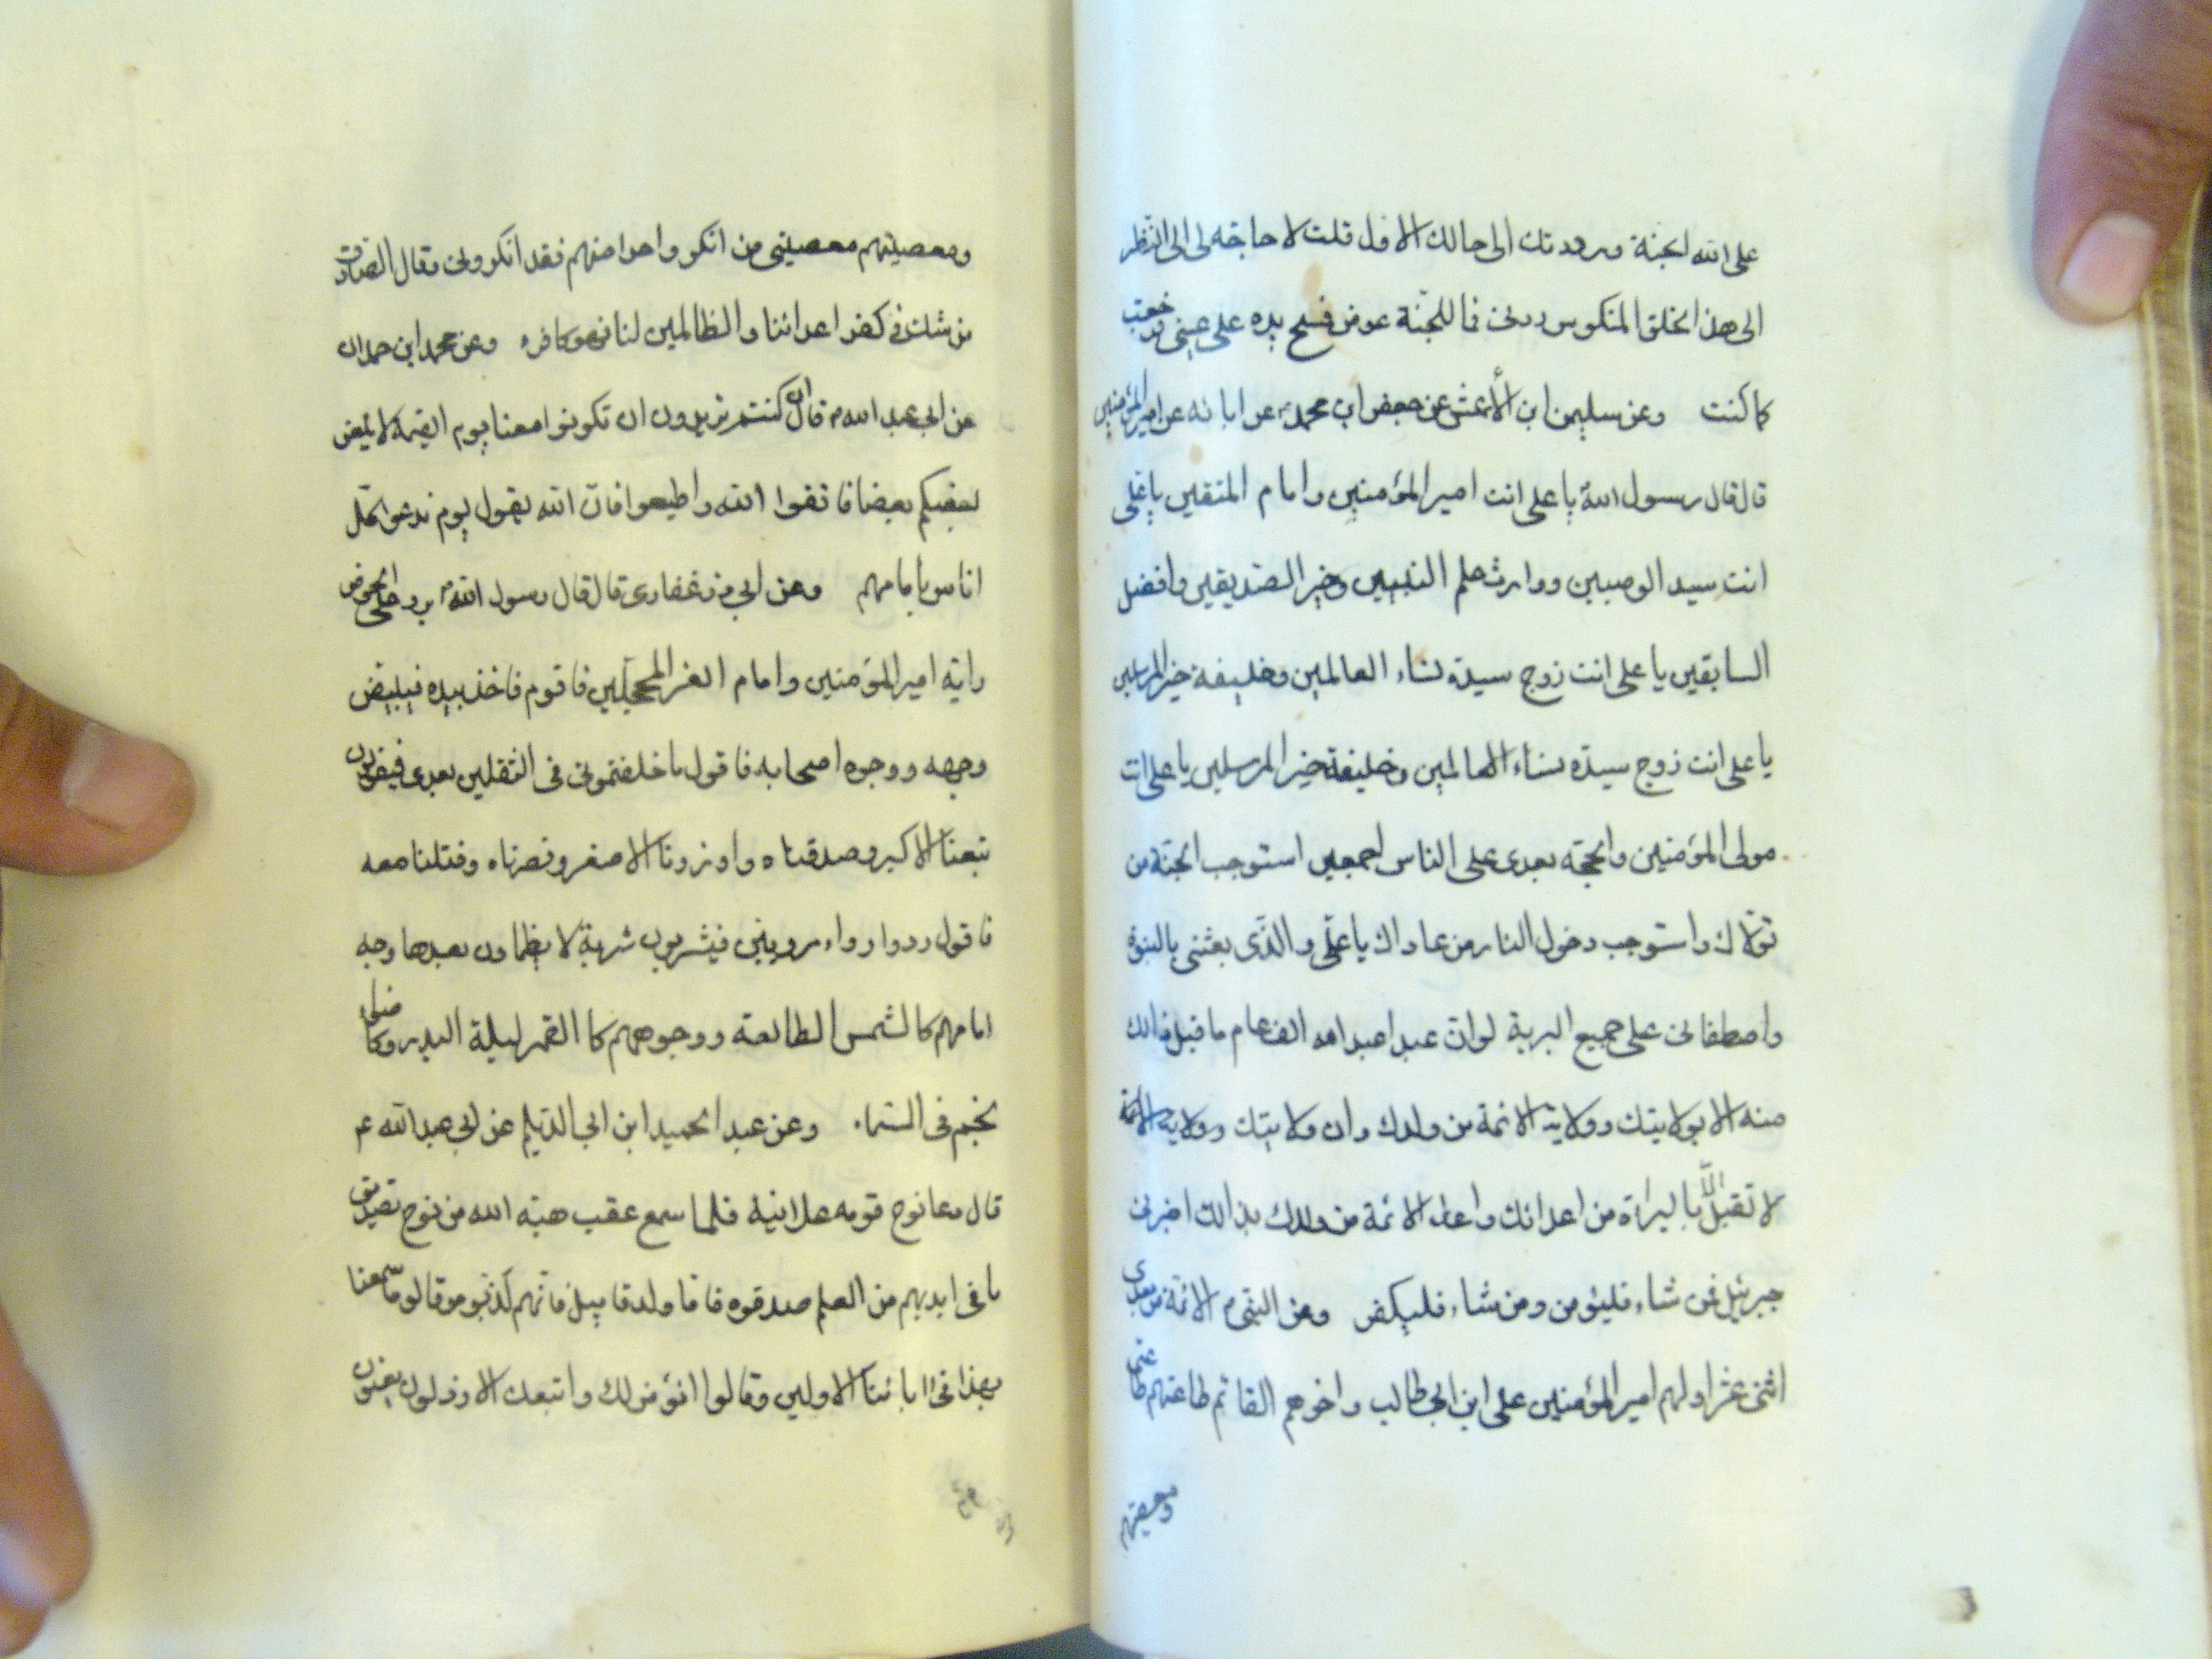 على الله الجنة ورددتك الى حالك الاول قلت لا حاجة لى الى النظر
الى هذا الخلق المنكوس ردنى فاللجنة عوض فمسح يده على عينى فرجعت
كما كنت وعن سليمن ابن الأعمش عن جعفر ابن محمد عن ابائه عن امير المؤمنين
قال قال رسول الله يا على انت امير المؤمنين وامام المتقين يا على
انت سيد الوصيين ووارث علم النبيين وخير الصديقين وافضل
السابقين يا على انت زوج سيدة نساء العالمين وخليفة خير المرسلين
يا على انت زوج سيدة نساء العالمين وخليفة خير المرسلين يا على انت
مولى المؤمنين والحجة بعدى على الناس اجمعين استوجب الجنة من
تولاك واستوجب دخول النار من عاداك يا على والذى بعثنى بالنبوة
واصطفانى على جميع البرية لوان عبدا عبد الله الف عام ما قبل ذالك
منه الا بولايتك وولاية الائمة من ولدك وان ولايتك وولاية الائمة
لا تقبل الا بالبراة من اعدائك واعداء الائمة من ولدك بذالك اخبرنى
جبرئيل فمن شاء فليؤمن ومن شاء فليكفر وعن النبى الائمة من بعدى
اثنى عشر اولهم امير المؤمنين على ابن ابى طالب واخرهم القائم طاعتهم طاعتى
ومعصيتهم
ومعصيتهم معصيتى من انكر واحدا منهم فقد انكرونى وقال الصادق
من شك فى كفر اعدائنا والظالمين لنا فهو كافر وعن محمد ابن حمدان
عن ابى عبد الله قال ان كنتم تريدون ان تكونوا معنا يوم القيمة لا يلعن
بعضكم بعضا فاتقوا الله واطيعوا فان الله يقول يوم ندعوا كل
اناس بامامهم وعن ابى ذر غفارى قال قال رسول الله يرد على الحوض
راية امير المؤمنين وامام الغر المحجلين فاقوم فاخذ بيده فيبيض
وجهه ووجوه اصحابه فاقول ما خلفتمونى فى الثقلين بعدى فيقولون
تبعنا الاكبر وصدقناه واوزرونا الاصغر ونصرناه وقتلنا معه
فاقول ردوا رواء مرويين فيشربون شربة لا يظماون بعدها وجه
امامهم كالشمس الطالعة ووجوههم كا القمر ليلة البدر وكاضلى
نجم فى السماء وعن عبد الحميد ابن ابى الديلم عن ابى عبد الله ع
قال دعا نوح قومه علانية فلما سمع عقب هبة الله من نوح تصديق
ما فى ايديهم من العلم صدقوه فاما ولد قابيل فانهم كذبوه وقالو ما سمعنا
بهذا فى ابائنا الاولين وقالوا انؤمن لك واتبعك الارذلون يعنون